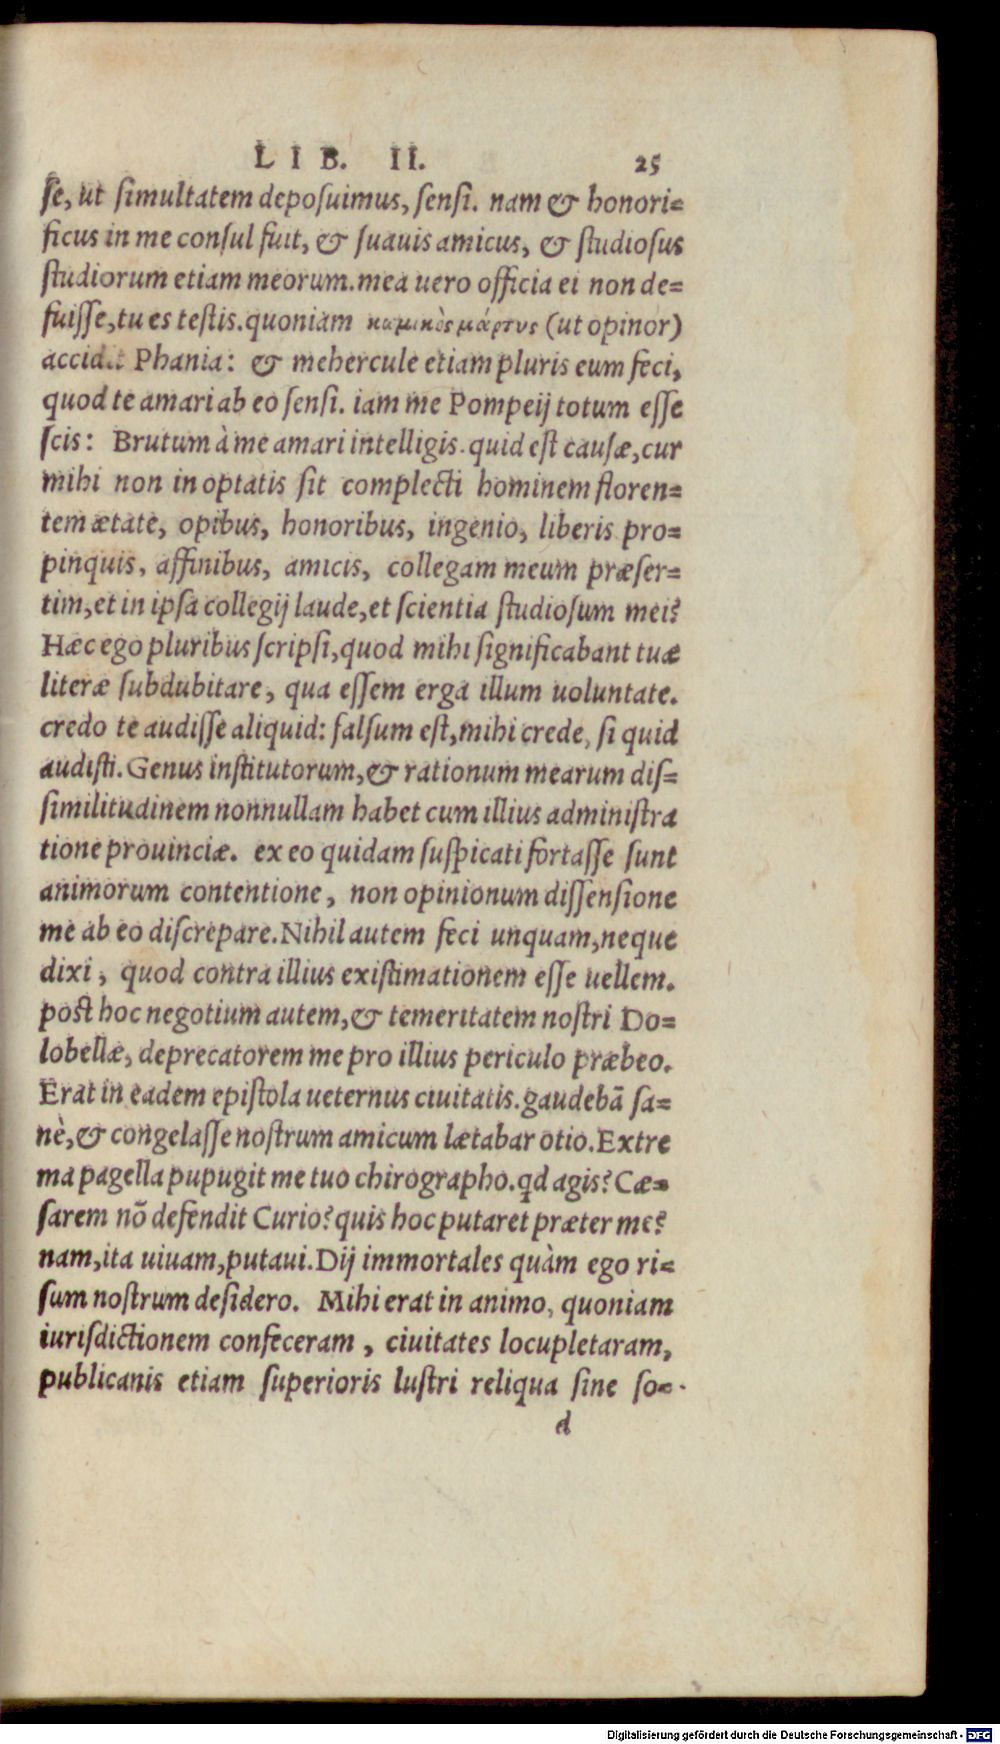 LIB. II. 25
ſe, ut ſimultatem depoſuimus, ſenſi. nam & honori=
ficus in me conſul fuit, & ſuauis amicus, & ſtudioſus
ſtudiorum etiam meorum. mea uero officia ei non de=
fuiſſe, tu es teſtis. quoniam κωμικὸς μάρτυς (ut opinor)
accidit Phania: & mehercule etiam pluris eum feci,
quod te amari ab eo ſenſi. iam me Pompeij totum eſſe
ſcis: Brutum à me amari intelligis. quid eſt cauſæ, cur
mihi non in optatis ſit complecti hominem floren=
tem ætate, opibus, honoribus, ingenio, liberis pro=
pinquis, affinibus, amicis, collegam meum præſer=
tim, et in ipſa collegij laude, et ſcientia ſtudioſum mei?
Hæc ego pluribus ſcripſi, quod mihi ſignificabant tuæ
literæ ſubdubitare, qua eſſem erga illum uoluntate.
credo te audiſſe aliquid: falſum eſt, mihi crede, ſi quid
audiſti. Genus inſtitutorum, & rationum mearum diſ=
ſimilitudinem nonnullam habet cum illius adminiſtra
tione prouinciæ. ex eo quidam ſuſpicati fortaſſe ſunt
animorum contentione, non opinionum diſſenſione
me ab eo diſcrepare. Nihil autem feci unquam, neque
dixi, quod contra illius exiſtimationem eſſe uellem.
poſt hoc negotium autem, & temeritatem noſtri Do=
lobellæ, deprecatorem me pro illius periculo præbeo.
Erat in eadem epiſtola ueternus ciuitatis. gaudebā ſa=
nè, & congelaſſe noſtrum amicum lætabar otio. Extre
ma pagella pupugit me tuo chirographo. qd agis? Cæ=
ſarem nō defendit Curio? quis hoc putaret præter me?
nam, ita uiuam, putaui. Dij immortales quàm ego ri=
ſum noſtrum deſidero. Mihi erat in animo, quoniam
iuriſdictionem confeceram, ciuitates locupletaram,
publicanis etiam ſuperioris luſtri reliqua ſine ſo=
d
Digitalisierung gefördert durch die Deutsche Forschungsgemeinschaft - DFG